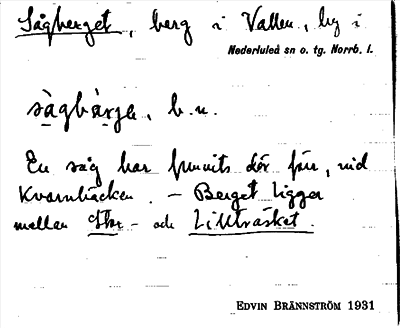 Sågberget, berg i Vallen, by i
Nederluleå sn o. tg. Norrb. l.
sàgbàrjə, b.u.
En såg har funnits där förr, vid
Kvarnbäcken. – Berget ligger
mellan – och Lillträsket.
EDVIN BRÄNNSTRÖM 1931